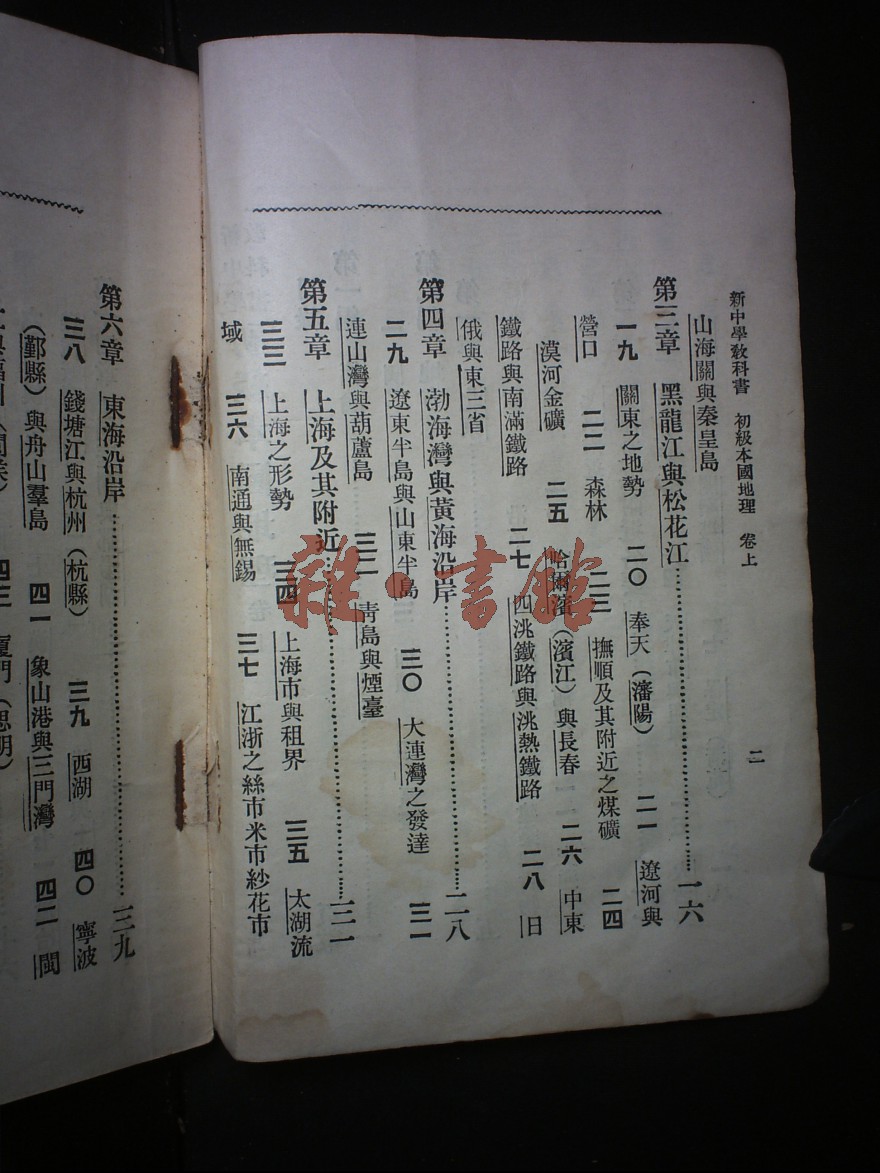 新中學教科書 初級本國地理 卷上
二
山海關與秦皇島
第三章 黑龍江與松花江…………一六
一九 關東之地勢 二〇 奉天（瀋陽） 二一 遼河與
營口 二二 森林 二三 撫順及其附近之煤礦 二四
漠河金礦 二五 哈爾濱（濱江）與長春 二六 中東
鐵路與南滿鐵路 二七 四洮鐵路與洮熱鐵路 二八 日
俄與東三省
第四章 渤海灣與黃海沿岸…………二八
二九 遼東半島與山東半島 三〇 大連灣之發達 三一
連山灣與葫蘆島 三二 靑島與煙臺
第五章 上海及其附近…………三一
三三 上海之形勢 三四 上海市與租界 三五 太湖流
域 三六 南通與無錫 三七 江浙之絲市米市紗花市
第六章 東海沿岸…………三九
三八 錢塘江與杭州（杭縣） 三九 西湖 四〇 寧波
（鄞縣）與舟山羣島 四一 象山港與三門灣 四二 閩
四三 廈門（思明）
雜·書館